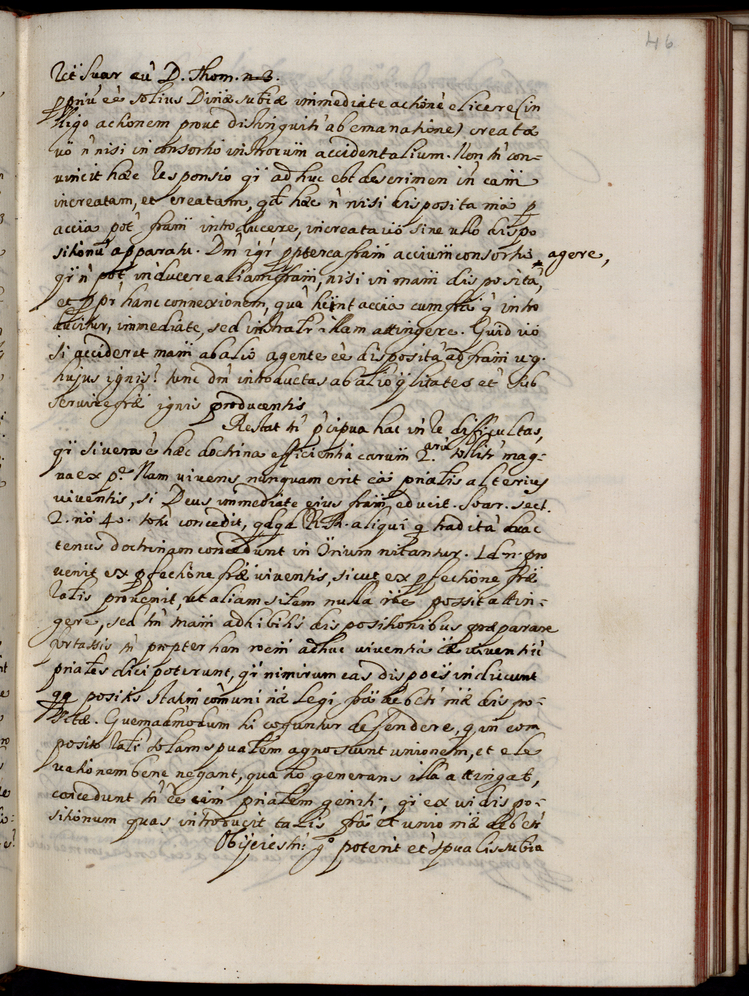 46
Rēt Suar cū D. Thom. n. 3.
ppriū eē solius Divinæ subiæ immediate actionē elicere (in
tligo actionem prout distinguit' ab emanatione) creatæ
vō n̄ nisi in consortio instrorum accidentalium. Non tn̄ con=
vincit hæc responsio qī adhuc est descrimen in cām
increatam, et creatam, qd hæc n̄ nisi disposita mā p
accīa pot' frām introducere, increata vō sine ullo dispo
sitionū apparatu. Dnr̄ igr̄ pptereà frām acciūm consortio agere,
qī n̄ pōt inducere aliam frām, nisi in mām dispositā,
et ppr̄ hanc connexionem, quā hēnt accīa cum frā q̄ intro
ducitur, immediate, sed instrā illam attingere. Quid vō
si accideret mām ab alio agente eē dispositā ad frām v.g.
hujus ignis? tunc dnr̄ introductas ab alio qlitates et' sub
servire frǣ ignis producentis
Restat tn̄ pcipua hac in re difficultas,
qī si vera ē hæc doctrina efficientia carum 2.arū tollitr̄ mag=
na ex pe. Nam vivens nunquam erit cā prīalis alterius
viventis, si Deus immediate ejus frām educit. Soar. sect.
2. nō 4. totū concedit, qdqd RR. aliqui q tradita huc
tenus doctrinam concedunt in Orium nitantur. Id n. pro
venit ex pfectione frǣ viventis, sicut ex pfectione frǣ
rālis provenit, ut aliam silem nulla rōe possit attin=
gere, sed tn̄ mām adhibitis dispositionibus præparare
tn̄ propter han roem adhuc viventia cæ viventiū
prīales dici poterunt, qī nimirum eas dispoēs inducunt
qq positis statim comuni nǣ legi frā debetr̄ mǣ dispo=
sitæ. Quemadmodum hi coguntur defendere, q in com
posito rāli solam spualem agnoscunt unionem, et ele
vationem bene negant, quā hō generans illā attingat,
concedunt tn̄ eē cām prīalem geniti, qī ex vi dispo=
sitionum quas introducit talis frā et unio mǣ debetr̄
Obijcies tn̄: go poterit et' spualis subīa